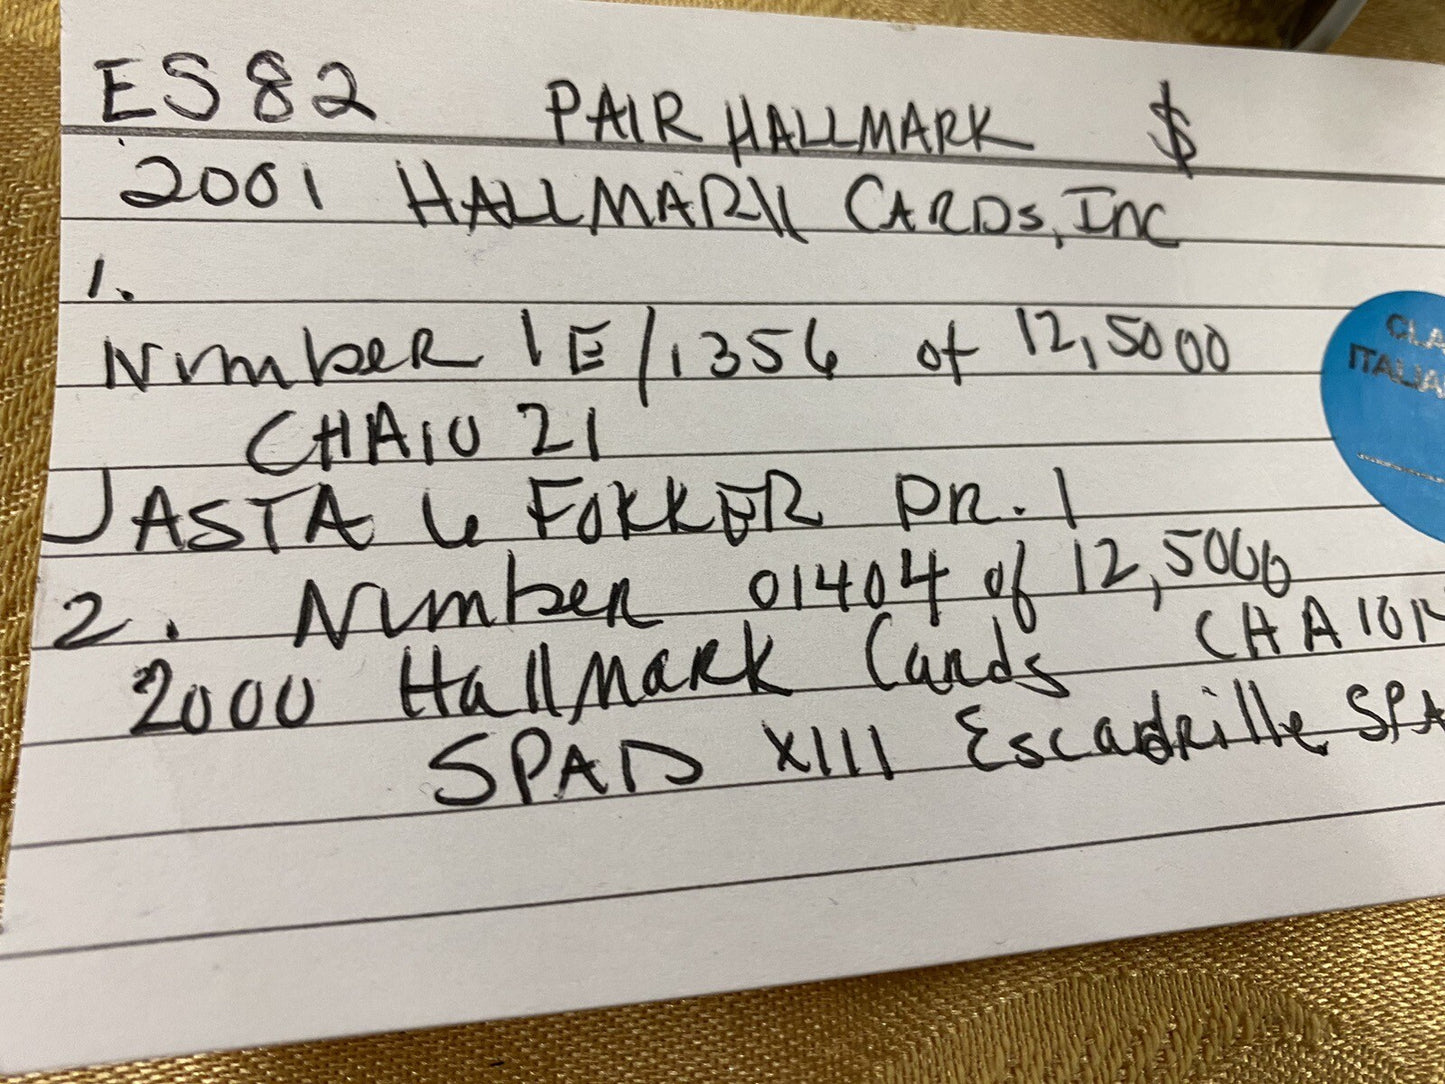 ES 82 PAIR HALLMARK $
2001 HALLMARK CARDS, Inc
1.
Number 1E/1356 of 12,5000
CHA10 21
JASTA 6 FOKKER DR. 1
2. Number 01404 of 12,5000
2000 HallMark Cards CHA101
SPAD XIII Escadrille SPA
CLA
ITALIA